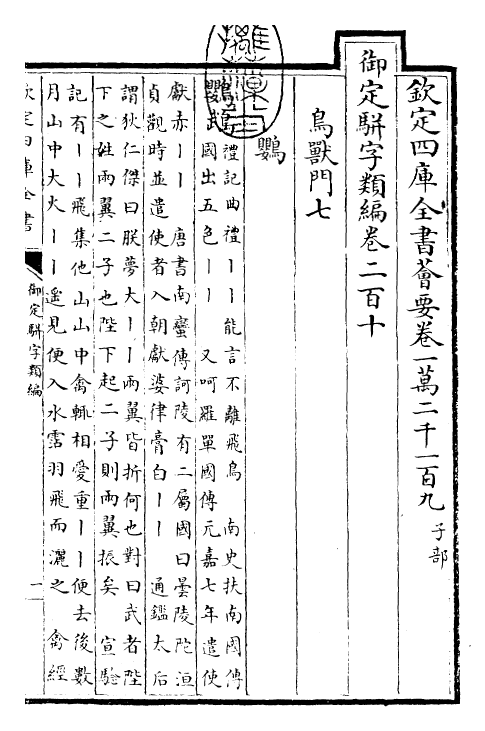 欽定四庫全書薈要卷一萬二千一百九 子部
御定駢字類編卷二百十
鳥獸門七
鸚
鸚鵡 禮記曲禮丨丨能言不離飛鳥 南史扶南國傳
國出五色丨丨 又呵羅單國傳元嘉七年遣使
獻赤丨丨 唐書南蠻傳訶陵有二屬國曰曇陵陀洹
貞觀時並遣使者入朝獻婆律膏白丨丨 通鑑太后
謂狄仁傑曰朕夢大丨丨兩翼皆折何也對曰武者陛
下之姓兩翼二子也陛下起二子則兩翼振矣 宣驗
記有丨丨飛集他山山中禽輒相愛重丨丨便去後數
月山中大火丨丨遥見便入水霑羽飛而灑之 禽經
欽定四庫全書
御定駢字類編
一